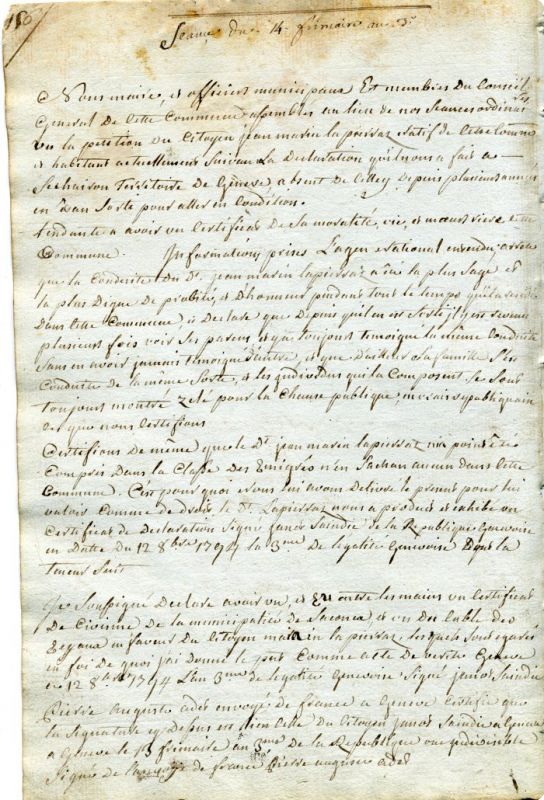 180
Seance du 14 frimaire an 3e
Nous maire, et officiers municipaux Et membres Du Conseil
General de Cette Commune assemblés au lieu de nos Seances ordinaires
vu la petition du Citoyen jean marin la pierraz natif de Cette Commune
et habitant actuellement Suivan La Declaration quil nous a fait a
Territoire De Genève, absent De Depuis plusieurs années
en Sorte pour aller en Condition.
tendante a avoir un Certificat De Sa moralité, vie, et moeurs
Commune. Informations prises L'agen National entendu
que la Conduite Du Dt. jean marin lapierraz a été la plus Sage et
la plus Digne de probité, et D'honneur pendant tout le temps
Dans Cette Commune, et Declare que Depuis quil en est Sorti il y est revenu
plusieurs fois voir Ses parens, et y a toujours temoigné la même Conduite
Sans en avoir jamais temoigné et que D'ailleur Sa famille Ses
Conduite de la même Sorte, et les individus qui la Composent Se Sont
toujours montré zelé pour la Chause publique,
Ce que nous Certifions
Certifions De même que le Dt. jean marin lapierraz na point été
Compris Dans la Classe Des Emigrés n'en Sachan aucun dans Cette
Commune. C'est pour quoi nous lui avons Delivré le present pour lui
valoir Comme de droit le Dt. Lapierraz nous a produit et exhibé un
Certificat de Declaration Signé janot Saindie de la Republique Genevoise
en Datte Du 12 8bre 1794 la 3me De legalité Genevoise Dont la
teneur Suit
Je Soussigné Declare avoir vu, et Eu entre les mains un Certificat
De Civisme De la municipalité de Saconex, et un Du Cable des
en faveur Du Citoyen marin la pierraz, lesquels Sont egarés
en foi de quoi j'ai Donné le pnt Comme acte de verité Geneve
ce 12 8bre 1794 L'an 3me de legalité Genevoise Signé janot Saindie
Pierre Auguste adet envoyé de france a Geneve Certifie que
la Signature cy depus est bien Celle du Citoyen janot Saindie a Geneve
a Geneve le 13 frimaire an 3me de la Republique une et indivisible
Signé de france Pierre auguste adet